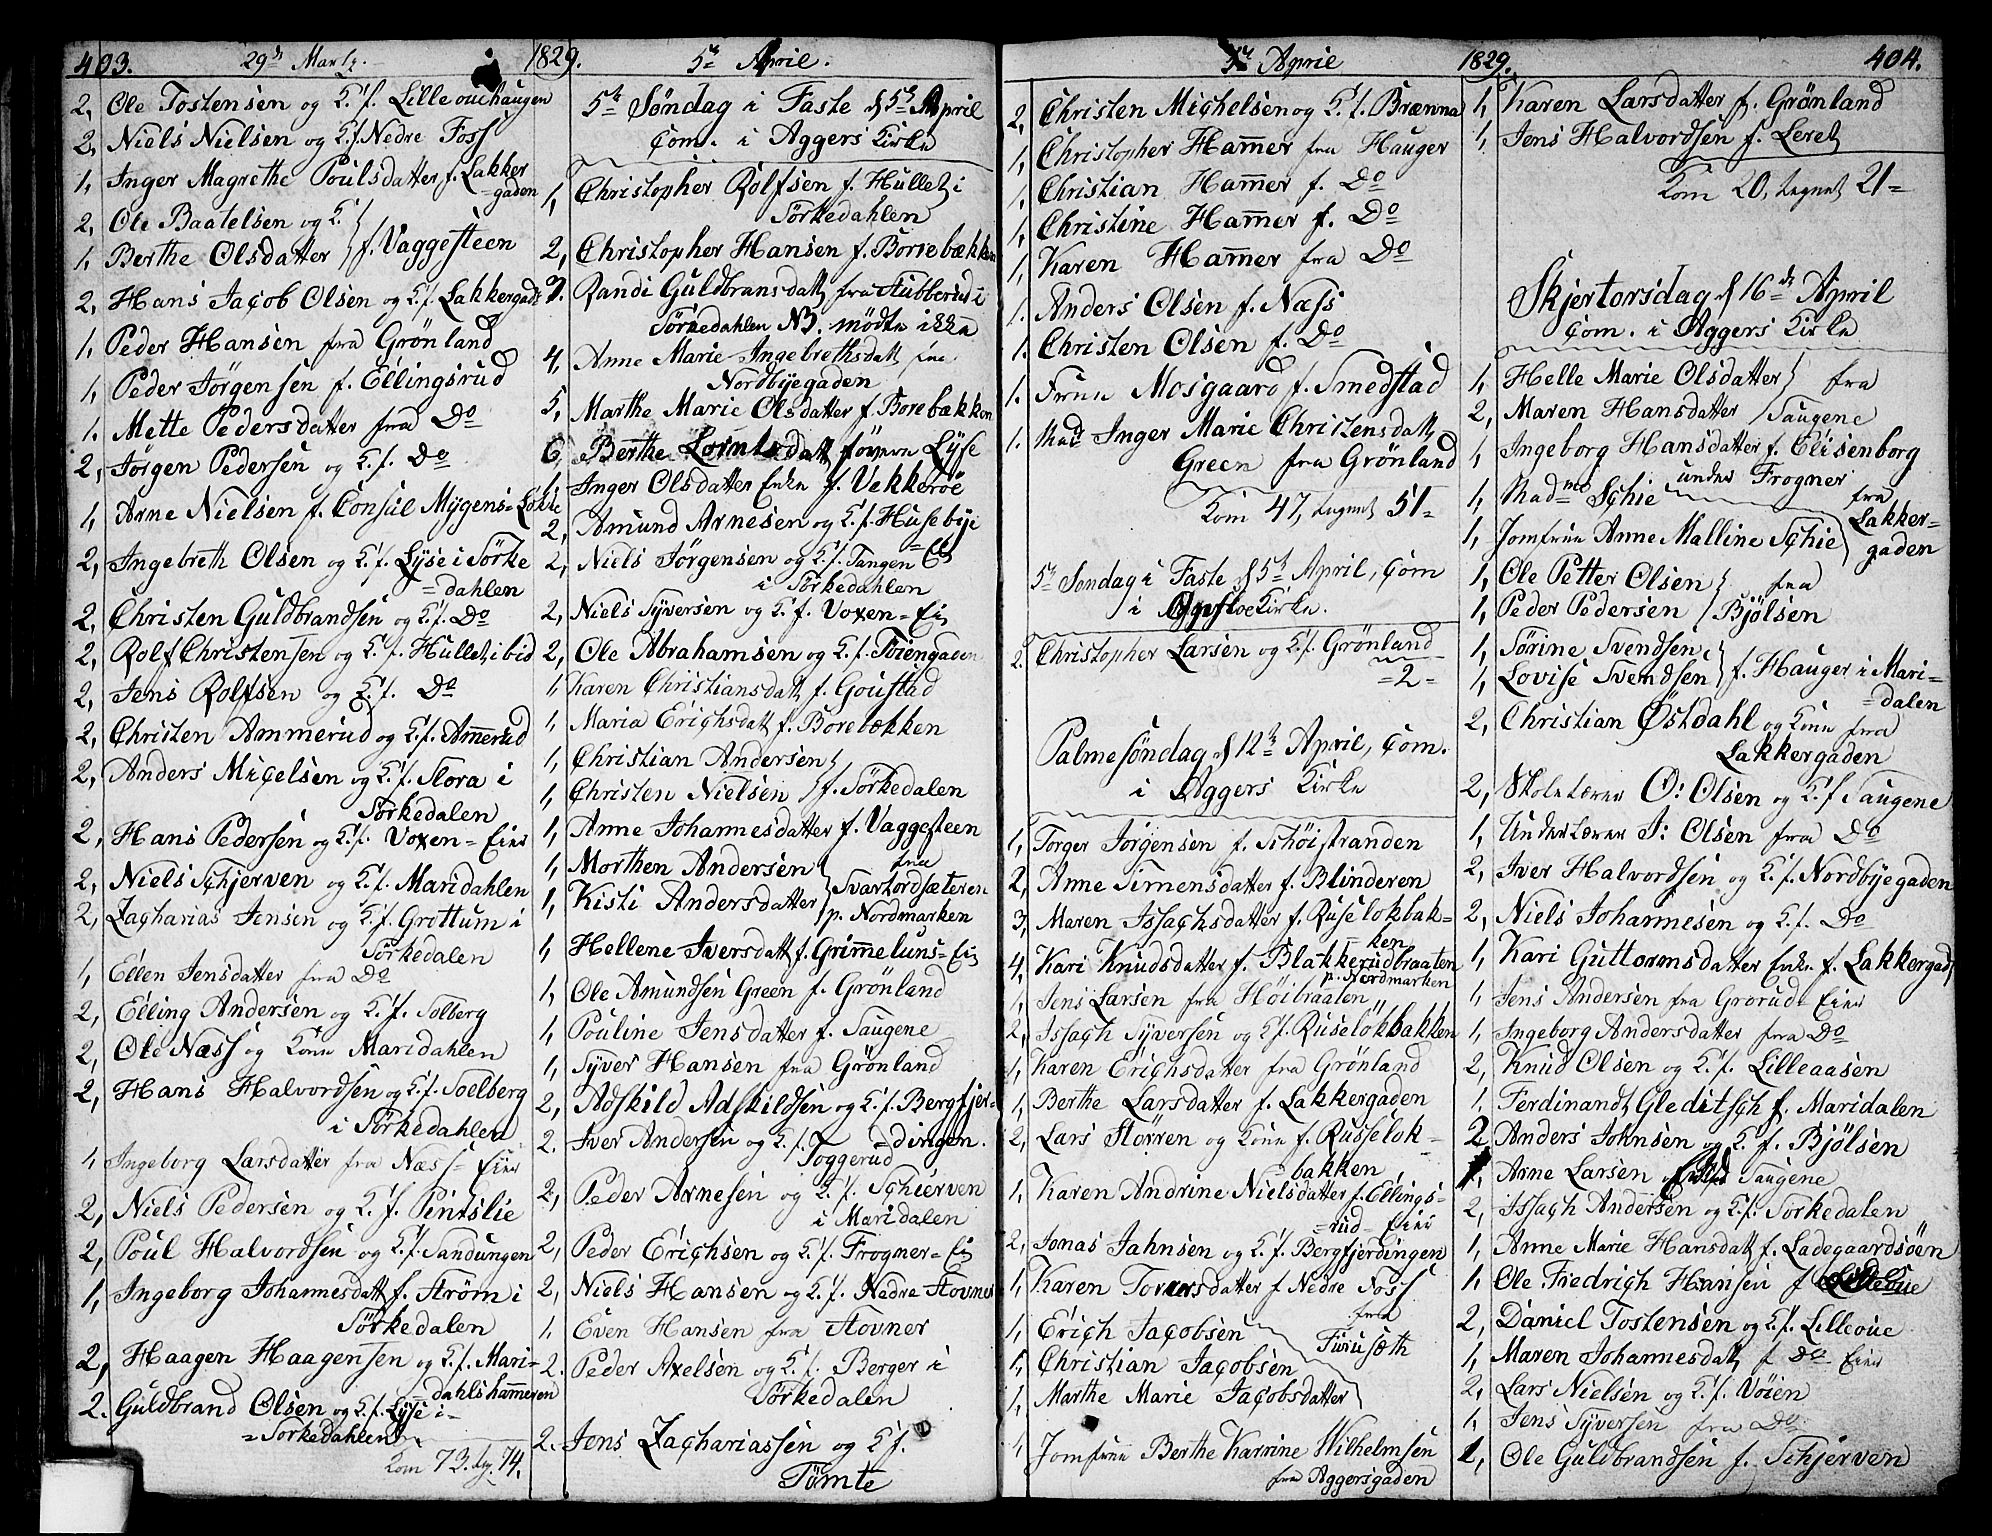 403. 29de Marty. 1829. 5te April.
2, Ole Tostensen og K. f. Lilleouehaugen
2, Niels Nielsen og K. f. Nedre Foss
1, Inger Magrethe Poulsdatter f. Lakker
=gaden
2, Ole Baatelsen og K.
1, Berthe Olsdatter f. Vaggesteen
2, Hans Jacob Olsen og K. f. Lakkergad
1, Peder Hansen fra Grönland
1, Peder Jörgensen f. Ellingsrud
1. Mette Pedersdatter fra Do
2, Jörgen Pedersen og K. f. Do
1, Arne Nielsen f. Consul Mygens= Lökke
2, Ingebreth Olsen og K. f. Lyse i Sörke
=dahlen
2, Christen Guldbrandsen og K. f. Do
2, Rolf Christensen og K. f. Hullet ibid
2, Jens Rolfsen og K. f. Do
2, Christen Ammerud og K. f. Amerud
2, Anders Micelsen og K. f. Stora i
Sörkedalen
2, Hans Pedersen og K. f. Voxen= Eier
2, Niels Schjerven og K. f. Maridahlen
2, Zacharias Jensen og K. f. Grottum i
Sörkedalen
1, Ellen Jensdatter fra Do
2, Elling Andersen og K. f. Solberg
2, Ole Næss og Kone Maridahlen
2, Hans Halvordsen og K. f. Soelberg
i Sörkedahlen
1, Ingeborg Larsdatter fra Næss= Eier
2, Niels Pedersen og K. f. Pintslie
2, Poul Halvordsen og K. f. Sandungen
1, Ingeborg Johannesdatt f. Ström i
Sörkedalen
2, Haagen Haagensen og K. f. Mari=
=dahlshameren
2. Guldbrand Olsen og K. f. Lyse i=
=Sorkedahlen
Kom 73. tg. 74.
5te Söndag i Faste d 5te April
Com. i Aggers Kirke
1, Christopher Rolfsen f. Hullet i
Sörkedahlen
2, Christopher Hansen f. Borrebækken
3. Randi Guldbransdatt fra Stubberud i
Sörkedahlen NB. mödte ikke
4, Anne Marie Ingebrethsdatt fra
Nordbyegaden
5, Marthe Marie Olsdatter f. Borebækken
6, Berthe Lorntsdatt Lyse
1, Inger Olsdatter Enke f. Vekkeröe
2, Amund Arnesen og K. f. Husebye
2, Niels Jörgensen og K. f. Tangen
i Sörkedahlen
2, Niels Syversen og K. f. Voxen= Ei
2, Ole Abrahamsen og K. f. Töiengaden
1, Karen Christiansdatt f. Goustad
1, Maria Erichsdatt f. Borebækken
1, Christian Andersen
1, Christen Nielsen f. Sörkedalen
1, Anne Johannesdatter f. Vaggesteen
1, Morthen Andersen fra
1, Kisti Andersdatter Svartordsæteren
p. Nordmarken
1, Hellene Iversdatt f. Grimeluns= Ei
1, Ole Amundsen Green f. Grönland
1, Pouline Jensdatter f. Saugene
1, Syver Hansen fra Grönland
2, Adskild Adskildsen og K. f. Bergfjer=
=dingen.
2. Iver Andersen og K. f. Toggerud
2, Peder Arnesen og K. f. Schierven
i Maridalen
2, Peder Erichsen og K. f. Frogner= Ei
2, Niels Hansen og K. f. Nedre Stovner
1, Even Hansen fra Stovner
2. Peder Axelsen og K. f. Berger i
Sörkedalen
2. Jens Zachariassen og K f.
Tömte
5te April 1829. 404.
2, Christen Michelsen og K. f. Brænna
1, Christopher Hamer fra Hauger
1, Christian Hamer f. Do
1, Christine Hamer f. Do
1, Karen Hamer fra Do
1. Anders Olsen f. Næss
1. Christen Olsen f. Do
1. Fruen Mosgaard f. Smedstad
1. Mad Inger Marie Christensdatt
Green fra Grönland
Kom 47, tegnet 51=
5te Söndag i Faste d 5te April, Com
i Opsloe Kirke.
2. Christopher Larsen og K. f. Grönland
=2=
Palmesöndag d 12te April, Com.
i Aggers Kirke
1, Torger Jörgensen f. Schöistranden
2, Anne Simensdatter f. Blinderen
3, Maren Issachsdatter f. Ruselokbak=
=ken
4, Kari Knudsdatter f. Blakkerudbraaten
p. Nordmarken
1, Jens Larsen fra Höibraaten
2, Issach Syversen og K. f. Ruselökbakken
1, Karen Erichsdatter fra Grönland
1, Berthe Larsdatter f. Lakkergaden
2, Lars Störren og Kone f. Russelok=
=bakken
1, Karen Andrine Nielsdatter f. Ellings=
=rud= Eier
2, Jonas Jahnsen og K. f. Bergfjerdingen
1, Karen Toversdatter f Nedre Foss
1, Erich Jacobsen fra
1, Christian Jacobsen Furuseth
1, Marthe Marie Jacobsdatter
1, Jomfrue Berthe Karrine Wilhelmsen
fra Aggersgaden
1, Karen Larsdatter f. Grönland
1, Jens Halvordsen f. Leret
Kom 20, tegnet 21=
Skjertorsdag d 16de April
Com. i Aggers Kirke
1, Helle Marie Olsdatter fra
2, Maren Hansdatter Saugene
1, Ingeborg Hansdatter f. Elisenborg
under Frogner
1, Madme Schie fra
1, Jomfrue Anne Malline Schie Lakker=
gaden
1, Ole Petter Olsen fra
1, Peder Pedersen Bjölsen
1, Sörine Svendsen
1, Lovise Svendsen f. Hauger i Mari=
=dalen
2, Christian Östdahl og Kone fra
Lakkergaden
2, Skolelærer O: Olsen og K. f Saugene
1, Underlærer J: Olsen fra Do
2, Iver Halvordsen og K. f. Nordbyegaden
2, Niels Johannesen og K. f. Do
1, Kari Guttormsdatter Enke f. Lakkergad
1, Jens Andersen fra Grorud= Eier
1, Ingeborg Andersdatter fra Do
2, Knud Olsen og K. f. Lilleaasen
1, Ferdinandt Gleditsch f. Maridalen
2 Anders Johnsen og K. f. Bjölsen
1, Arne Larsen Saugene
2, Issach Andersen og K. f. Sorkedalen
1, Anne Marie Hansdatt f. Ladegaardsöen
1, Ole Fredrich Hansen f Lilleoue
2, Daniel Tostensen og K. f. Lilleoue
1, Maren Johannesdatt f Do Eier
2, Lars Nielsen og K. f. Vöien
1, Jens Syversen fra Do
1, Ole Guldbrandsen f. Schjerven